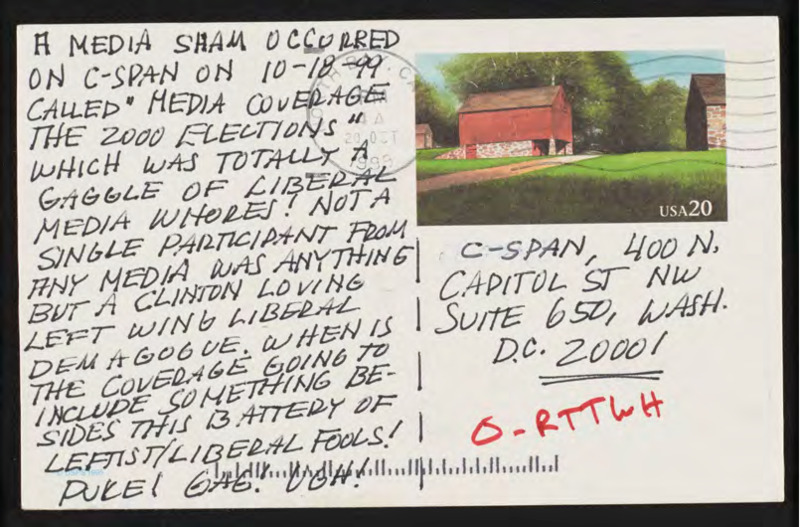 A MEDIA SHAM OCCURRED
ON C-SPAN ON 10-18-99
CALLED "MEDIA COVERAGE
THE 2000 ELECTIONS"
WHICH WAS TOTALLY A
GAGGLE OF LIBERAL
MEDIA WHORES! NOT A
SINGLE PARTICIPANT FROM
ANY MEDIA WAS ANYTHING
BUT A CLINTON LOVING
LEFT WING LIBERAL
DEMAGOGUE. WHEN IS
THE COVERAGE GOING TO
INCLUDE SOMETHING BE-
SIDES THIS BATTERY OF
LEFTIST/LIBERAL FOOLS!
PUKE! GAG! UGH!
20 OCT
1999
USA20
C-SPAN, 400 N.
CAPITOL ST NW
SUITE 650, WASH.
D.C. 20001
O-RTTWH